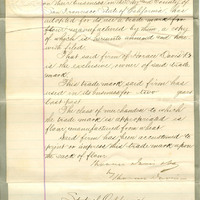 in the
San Francisco State of California has
adopted for its use a trade mark for
flour manufactured by them a copy
of which is hereunto annexed and here
with filed
That said firm of Horace Davis & Co
is the exclusive owner of said trade
mark
This trade mark said firm has
used in its business for two years
last past
The class of merchandise to which
the trade mark is appropriated is
flour manufactured from wheat
Said firm has been accustomed to
print or impress this trade mark upon
the sack of flour
Horace Davis & Co
by Horace Davis
State of